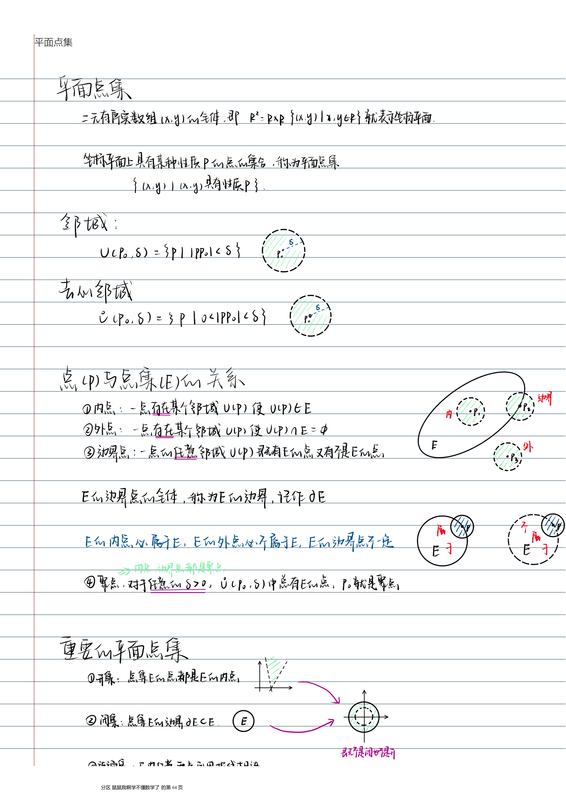 平面点集
平面点集
二元有序实数组(x,y)的全体,即 R²=R×R {(x,y)|x,y∈R}就表示坐标平面.
坐标平面上具有某种性质P的点的集合,称为平面点集
{(x,y)|(x,y)具有性质P}.
邻域:
U(P₀,δ)={P||PP₀|<δ}
P₀ δ
去心邻域
Ů(P₀,δ)={P|0<|PP₀|<δ}
P₀ δ
点(P)与点集(E)的关系
①内点:一点存在某个邻域U(P)使U(P)∈E
②外点:一点存在某个邻域U(P)使U(P)∩E=φ
③边界点:一点的任意邻域U(P)既有E的点又有不是E的点
内 P₁ P₂ 边界
E P₃ 外
E的边界点的全体,称为E的边界,记作∂E
E的内点必属于E,E的外点必不属于E,E的边界点不一定
属于 E
不属于 E
=>内点,边界点都是聚点
④聚点:对于任意的δ>0,Ů(P₀,δ)中总有E的点,P₀就是聚点
重要的平面点集
①开集:点集E的点都是E的内点
②闭集:点集E的边界∂E⊂E
E
分区 鼠鼠我啊学不懂数学了 的第 44 页